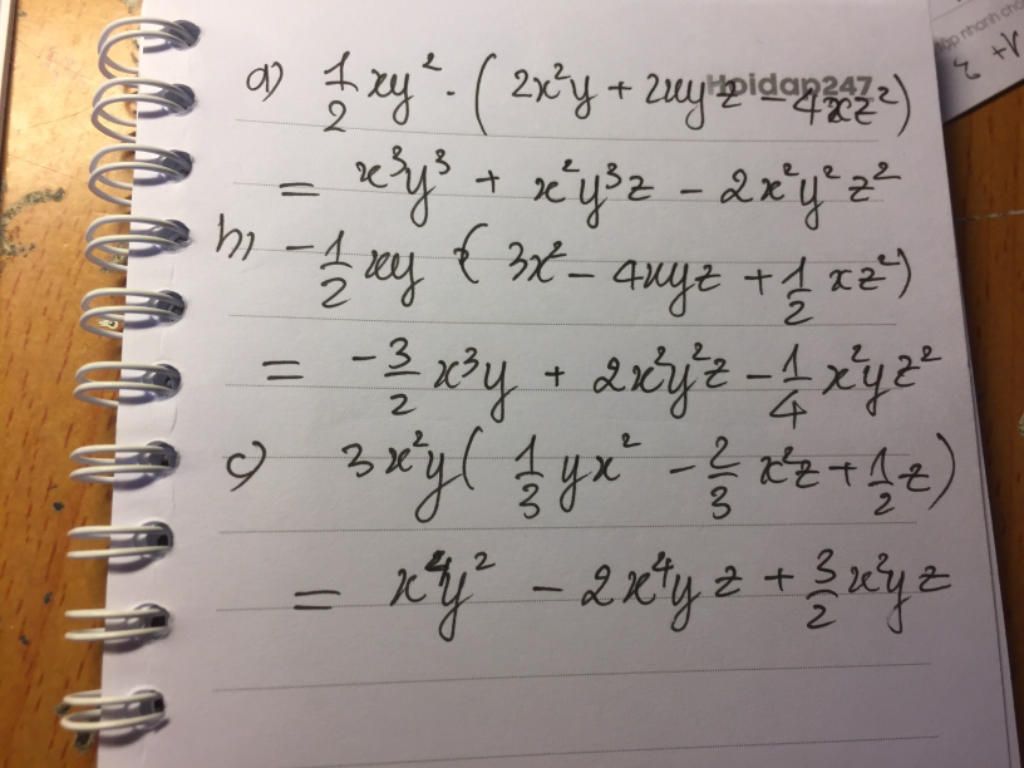 a) 1/2 xy² · ( 2x²y + 2xyz - 4xz²)
Hoidap247
= x³y³ + x²y³z - 2x²y²z²
b) -1/2 xy ( 3x² - 4xyz + 1/2 xz²)
= -3/2 x³y + 2x²y²z - 1/4 x²yz²
c) 3x²y( 1/3 yx² - 2/3 x²z + 1/2 z)
= x⁴y² - 2x⁴yz + 3/2 x²yz